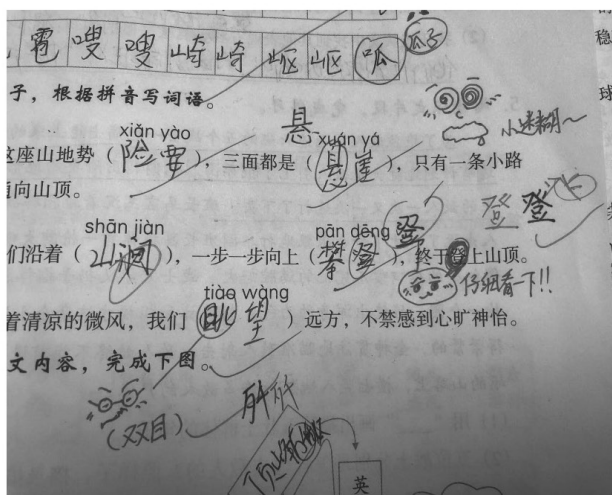 雹嗖嗖崎崎岖岖呱 瓜子
子，根据拼音写词语。
悬
小迷糊～
xiǎn yào xuán yá
这座山地势（险要），三面都是（悬崖），只有一条小路
通向山顶。
登登
shān jiàn pān dēng
们沿着（山涧），一步一步向上（攀登），终于登上山顶。
仔细看一下!!
tiào wàng
着清凉的微风，我们（眺望）远方，不禁感到心旷神怡。
文内容，完成下图。
(双目)
英
稳
球